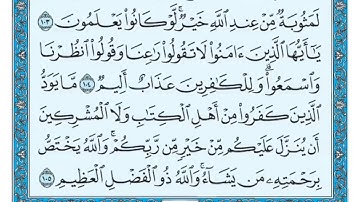 لَمَثُوبَةٌ مِّنْ عِندِ ٱللَّهِ خَيْرٌۚ لَّوْ كَانُوا۟ يَعْلَمُونَ ١٠٣
يَٰٓأَيُّهَا ٱلَّذِينَ ءَامَنُوا۟ لَا تَقُولُوا۟ رَٰعِنَا وَقُولُوا۟ ٱنظُرْنَا
وَٱسْمَعُوا۟ۗ وَلِلْكَٰفِرِينَ عَذَابٌ أَلِيمٌ ١٠٤ مَّا يَوَدُّ
ٱلَّذِينَ كَفَرُوا۟ مِنْ أَهْلِ ٱلْكِتَٰبِ وَلَا ٱلْمُشْرِكِينَ
أَن يُنَزَّلَ عَلَيْكُم مِّنْ خَيْرٍ مِّن رَّبِّكُمْۗ وَٱللَّهُ يَخْتَصُّ
بِرَحْمَتِهِۦ مَن يَشَآءُۚ وَٱللَّهُ ذُو ٱلْفَضْلِ ٱلْعَظِيمِ ١٠٥